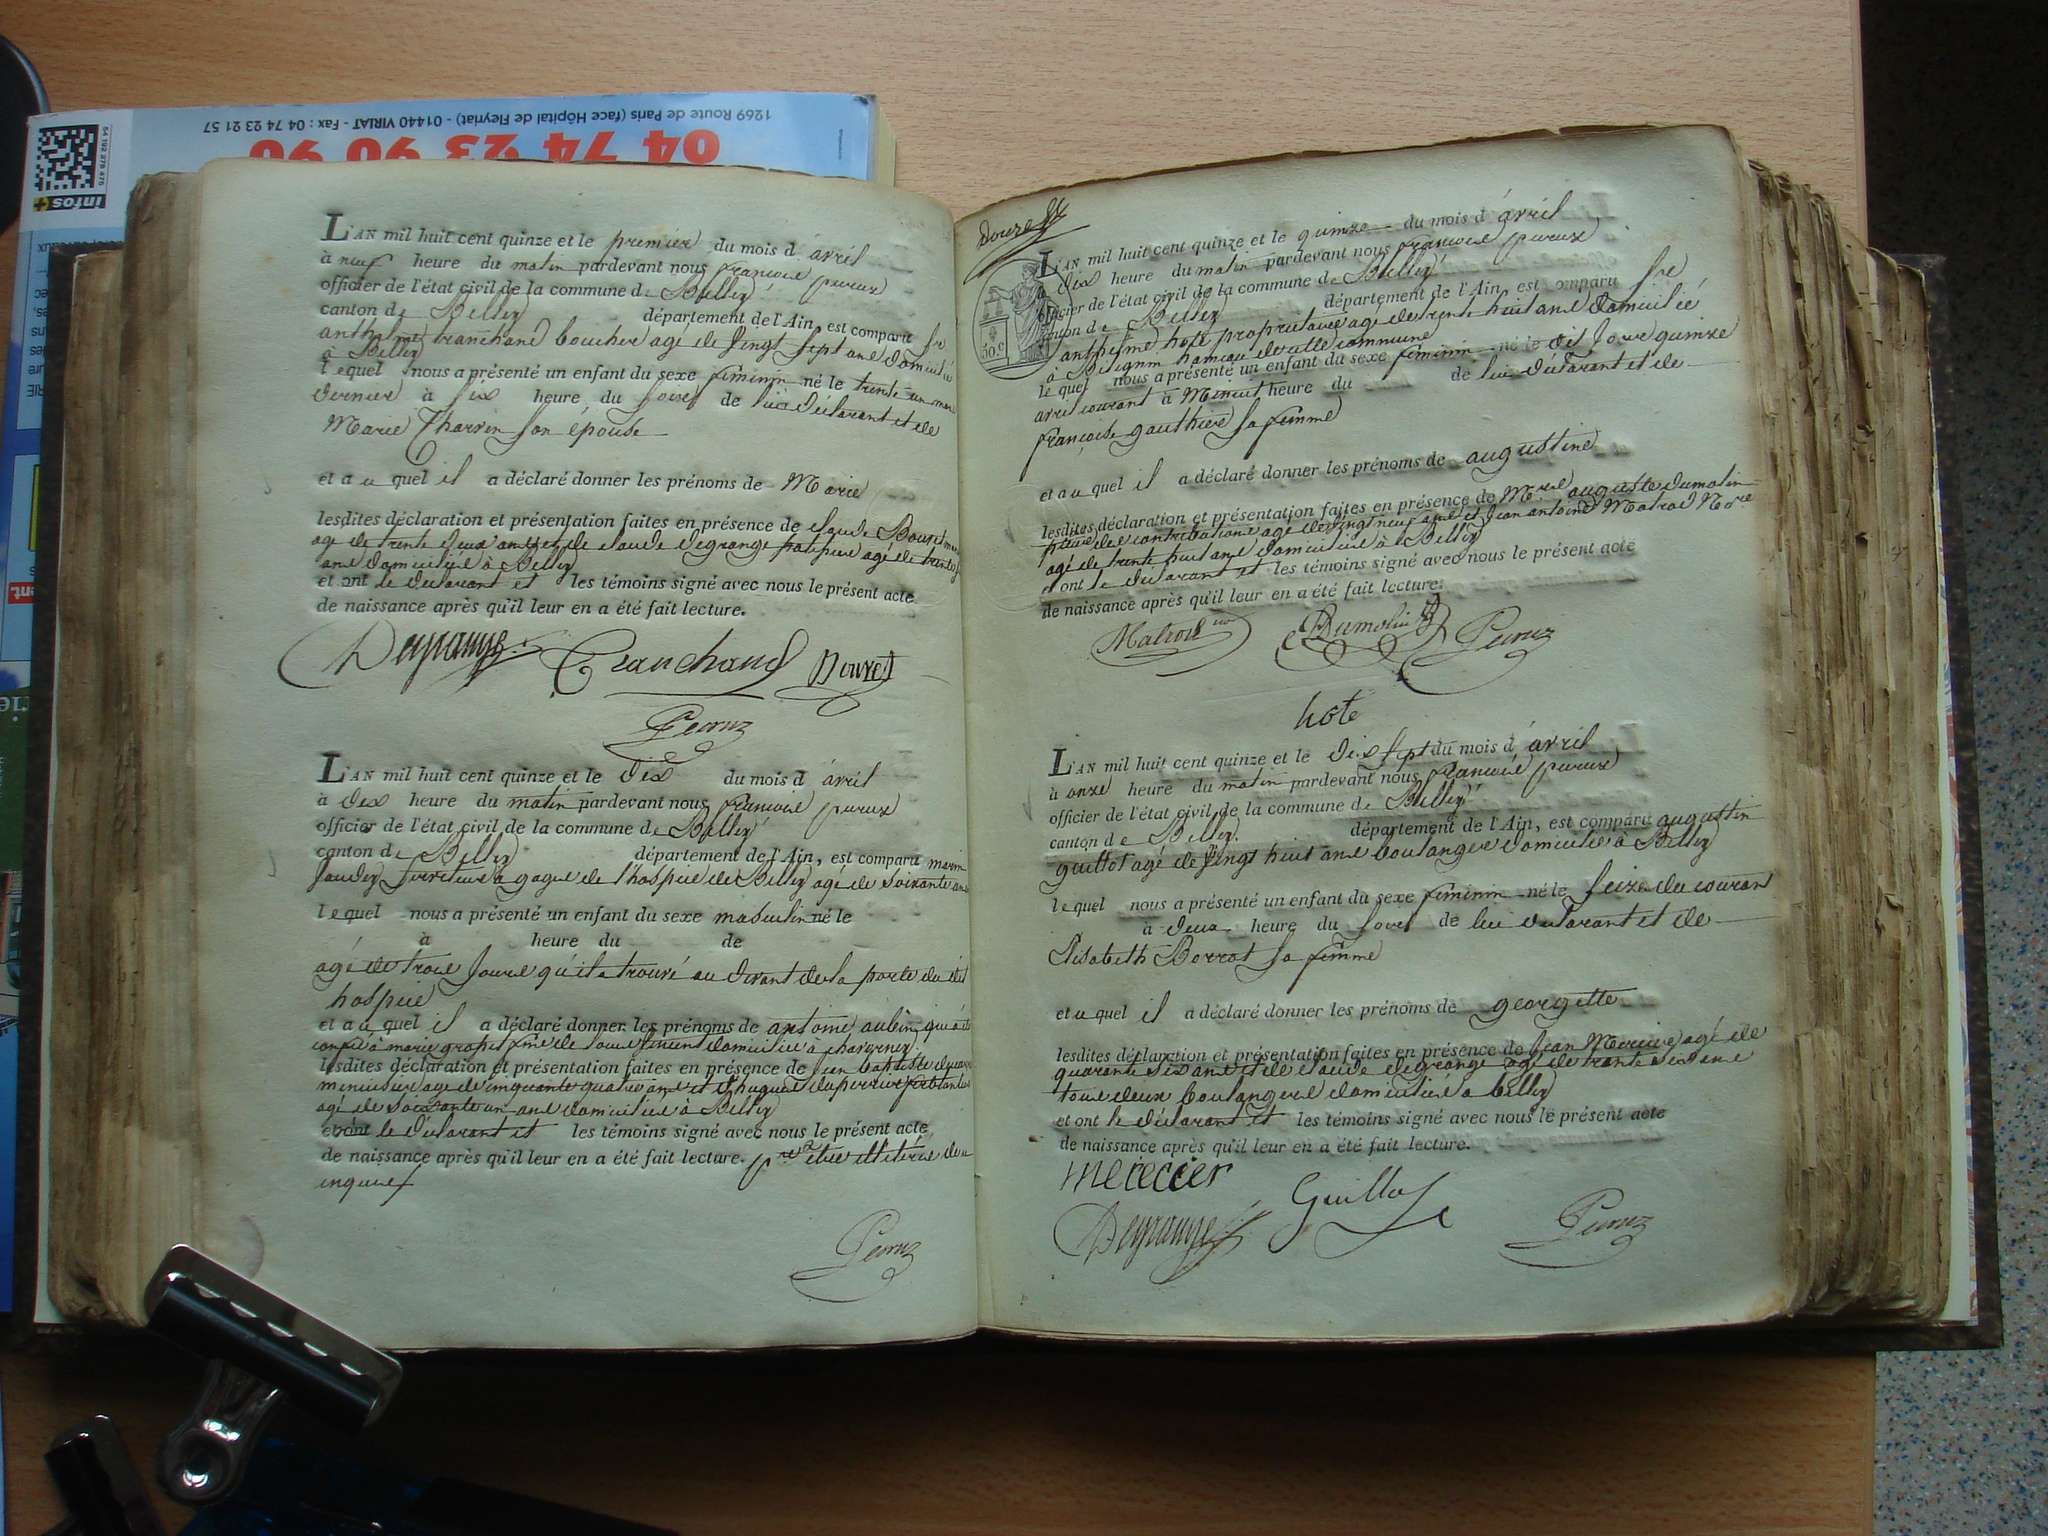 1269 Route de Paris (face Hôpital de Fleyriat) - 01440 VIRIAT - Fax : 04 74 23 21 57
04 74 23 90 90
infos
L'AN mil huit cent quinze et le premier du mois d'avril
à neuf heure du matin pardevant nous françois peruz
officier de l'état civil de la commune de Belley
canton de Belley département de l'Ain, est comparu fr
anthelme tranchand boucher agé de vingt sept ans domicilié
à Belley
lequel nous a présenté un enfant du sexe feminin né le trente un mars
dernier à six heure du soir de lui déclarant et de
Marie Tharrin son épouse
et auquel il a déclaré donner les prénoms de Marie
lesdites déclaration et présentation faites en présence de claude Bouvet
agé de trente deux ans et de claude degrange agé de trente
ans domiciliés à Belley
et ont le déclarant et les témoins signé avec nous le présent acte
de naissance après qu'il leur en a été fait lecture.
Degrange Tranchand Bouvet
Peruz
L'AN mil huit cent quinze et le dix du mois d'avril
à dix heure du matin pardevant nous françois peruz
officier de l'état civil de la commune de Belley
canton de Belley département de l'Ain, est comparu
serviteur à gage de l'hospice de Belley agé de soixante ans
lequel nous a présenté un enfant du sexe masculin né le
à heure du de
agé de trois jours qu'il a trouvé au devant de la porte du dit
hospice
et auquel il a déclaré donner les prénoms de antoine aubin qui a été
confié à marie domiciliée à
lesdites déclaration et présentation faites en présence de jean baptiste
menuisier agé de cinquante quatre ans et
agé de soixante un ans domiciliés à Belley
et ont le déclarant et les témoins signé avec nous le présent acte
de naissance après qu'il leur en a été fait lecture. être illiteré de ce
enquis
Peruz
douze
50 c
L'AN mil huit cent quinze et le quinze du mois d'avril
à dix heure du matin pardevant nous françois peruz
officier de l'état civil de la commune de Belley
canton de Belley département de l'Ain, est comparu fre
anthelme hote propriétaire agé de trente huit ans domicilié
à hameau de cette commune
lequel nous a présenté un enfant du sexe feminin né le dit jour quinze
avril courant à Minuit heure du de lui déclarant et de
françoise gauthier sa femme
et auquel il a déclaré donner les prénoms de augustine
lesdites déclaration et présentation faites en présence de auguste dumolin
des contributions agé de vingt neuf ans et jean antoine Matrod
agé de trente huit ans domiciliés à Belley
et ont le déclarant et les témoins signé avec nous le présent acte
de naissance après qu'il leur en a été fait lecture.
Matrod Dumolin Peruz
hote
L'AN mil huit cent quinze et le dix sept du mois d'avril
à onze heure du matin pardevant nous françois peruz
officier de l'état civil de la commune de Belley
canton de Belley département de l'Ain, est comparu augustin
guillot agé de vingt huit ans boulanger domicilié à Belley
lequel nous a présenté un enfant du sexe feminin né le seize du courant
à deux heure du soir de lui déclarant et de
Elisabeth Borrot sa femme
et auquel il a déclaré donner les prénoms de georgette
lesdites déclaration et présentation faites en présence de jean Mercier agé de
quarante six ans et de claude degrange agé de trente six ans
tous deux boulangers domiciliés à belley
et ont le déclarant et les témoins signé avec nous le présent acte
de naissance après qu'il leur en a été fait lecture.
merecier
Degrange Guillot Peruz